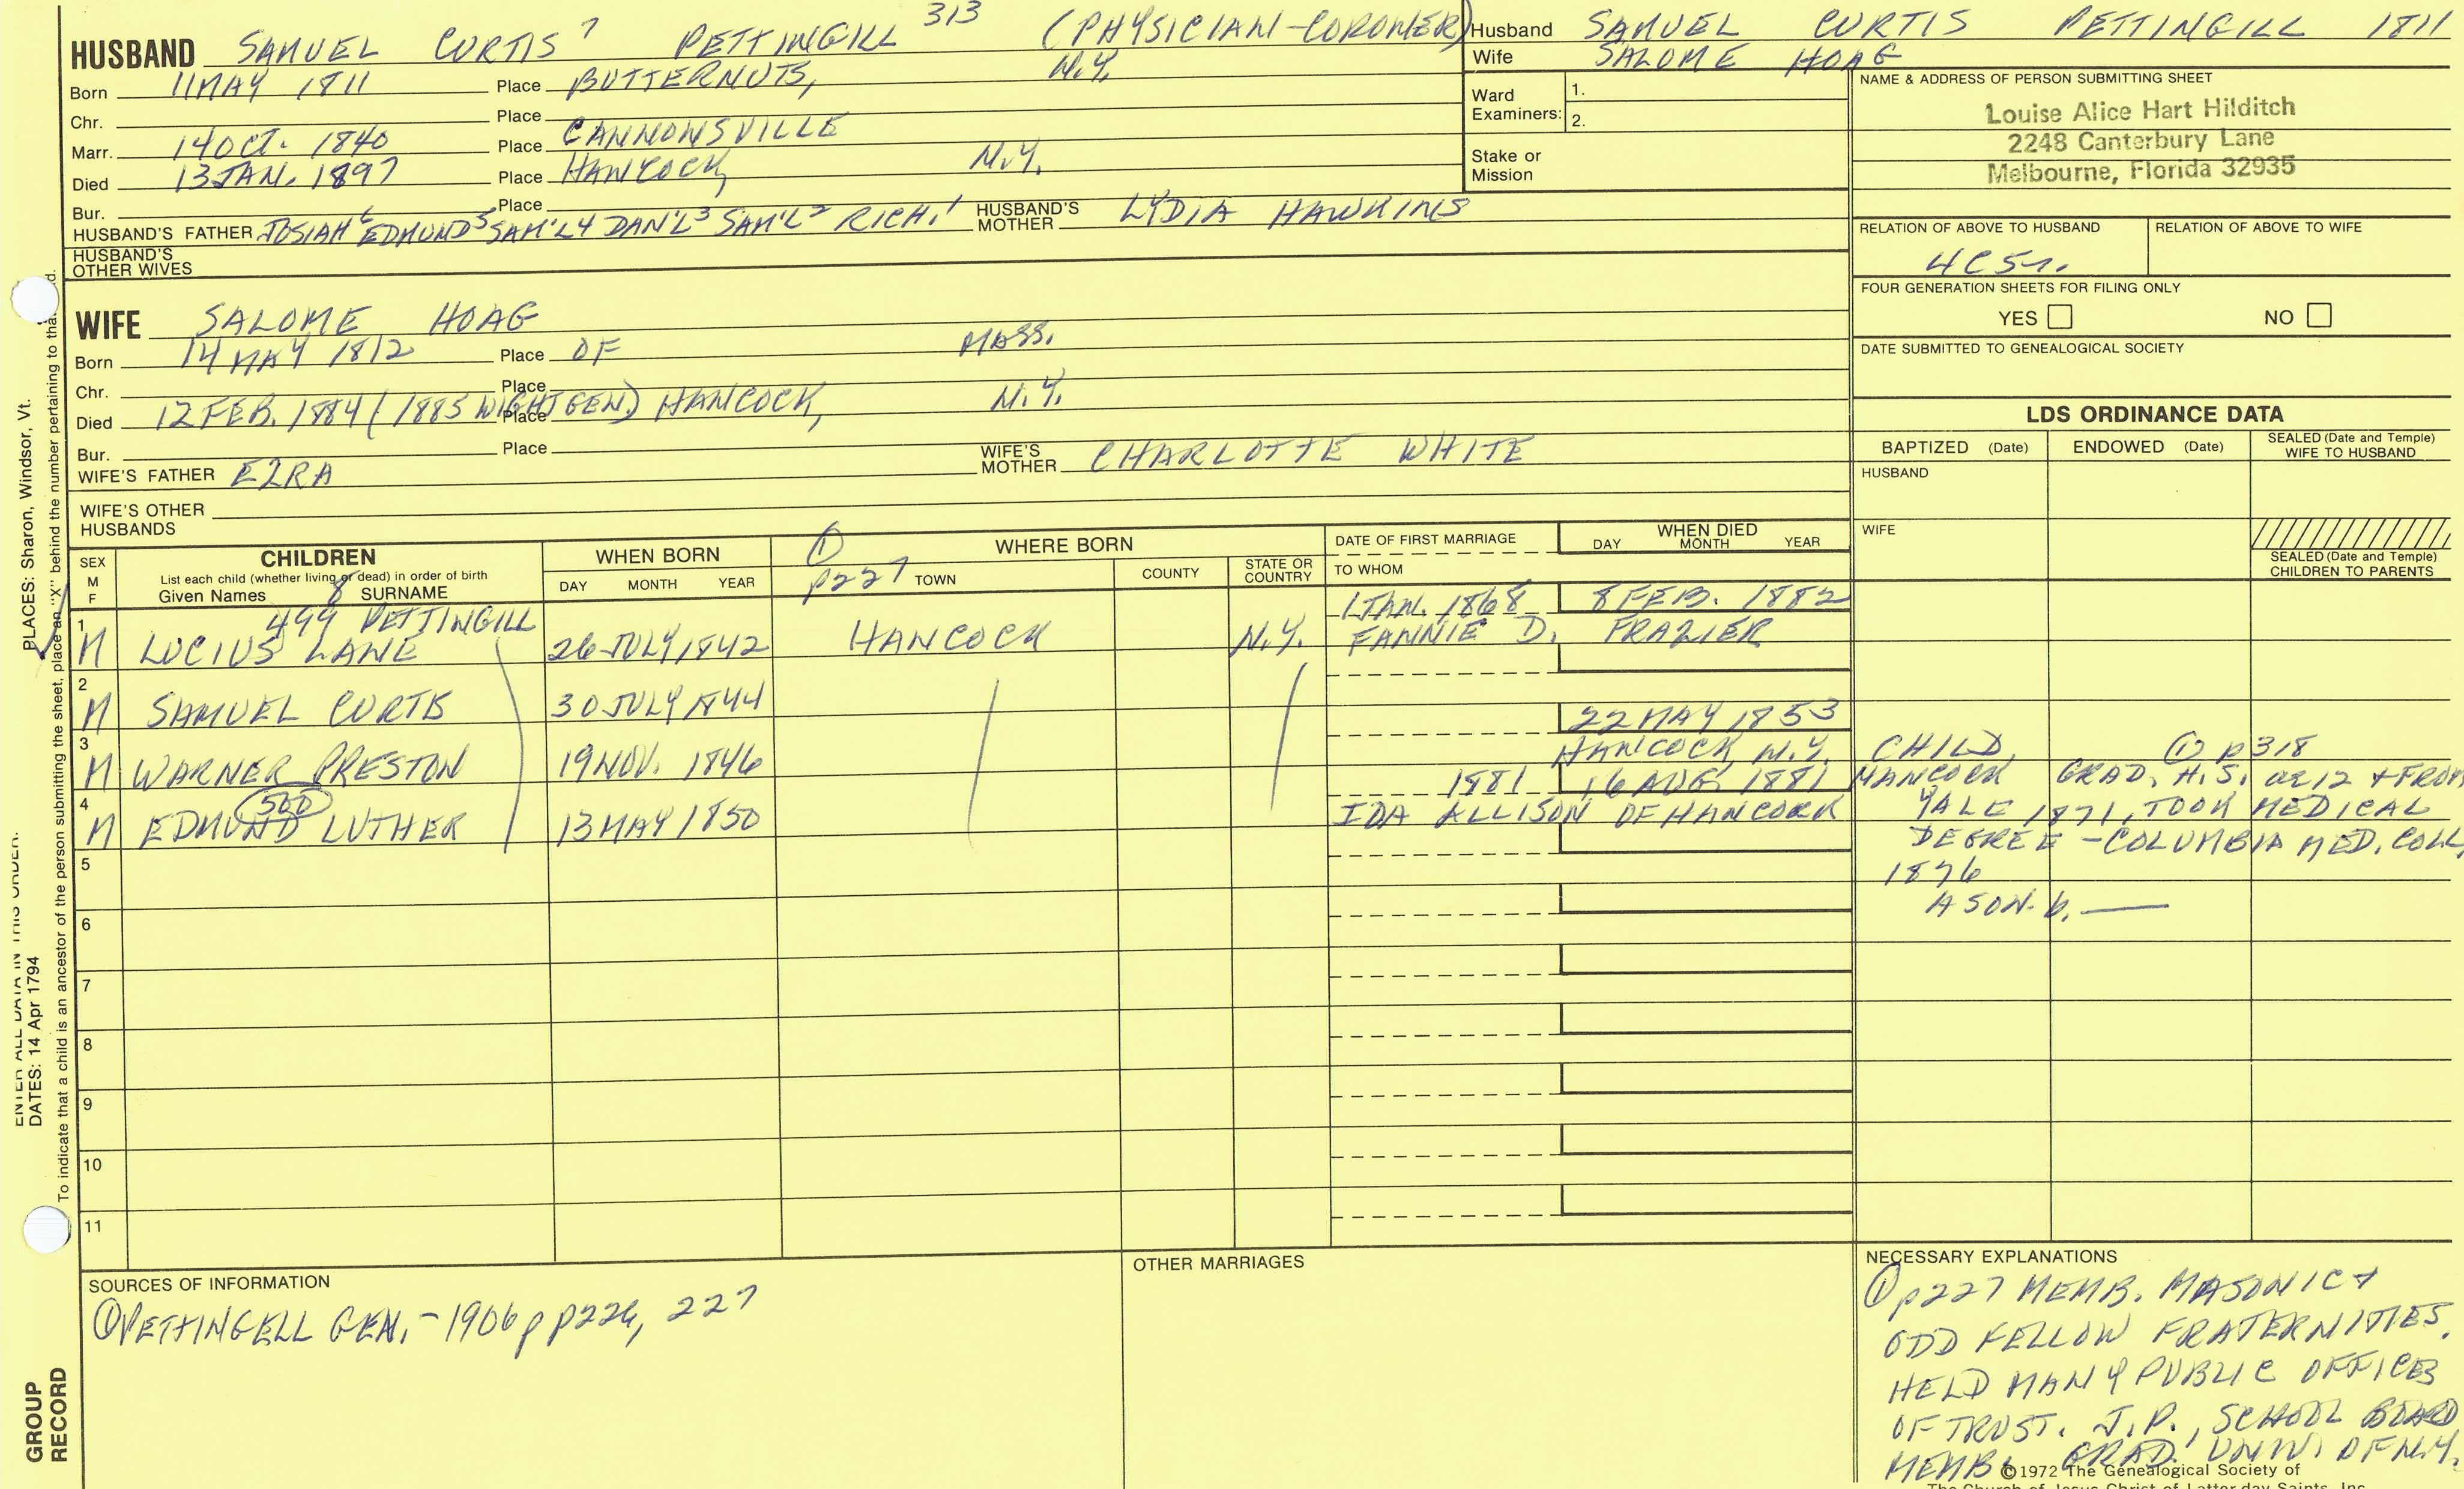 HUSBAND SAMUEL CURTIS 7 PETTINGILL 313 (PHYSICIAN-CORONER)
Born 11 MAY 1811 Place BUTTERNUTS, N.Y.
Chr. Place
Marr. 14 OCT. 1840 Place CANNONSVILLE
Died 13 JAN. 1897 Place HANCOCK, N.Y.
Bur. Place
HUSBAND'S FATHER JOSIAH 6 EDMUND 5 SAM'L 4 DAN'L 3 SAM'L 2 RICH. 1 HUSBAND'S MOTHER LYDIA HAWKINS
HUSBAND'S OTHER WIVES
WIFE SALOME HOAG
Born 14 MAY 1812 Place OF MASS.
Chr. Place
Died 12 FEB. 1884 (1885 WIGHT GEN) Place HANCOCK, N.Y.
Bur. Place
WIFE'S FATHER EZRA WIFE'S MOTHER CHARLOTTE WHITE
WIFE'S OTHER HUSBANDS
Husband SAMUEL CURTIS PETTINGILL 1811
Wife SALOME HOAG
Ward Examiners: 1.
2.
Stake or Mission
NAME & ADDRESS OF PERSON SUBMITTING SHEET
Louise Alice Hart Hilditch
2248 Canterbury Lane
Melbourne, Florida 32935
RELATION OF ABOVE TO HUSBAND RELATION OF ABOVE TO WIFE
4C5r.
FOUR GENERATION SHEETS FOR FILING ONLY
YES NO
DATE SUBMITTED TO GENEALOGICAL SOCIETY
LDS ORDINANCE DATA
BAPTIZED (Date) ENDOWED (Date) SEALED (Date and Temple) WIFE TO HUSBAND
HUSBAND
WIFE
SEALED (Date and Temple) CHILDREN TO PARENTS
SEX M F
CHILDREN
List each child (whether living or dead) in order of birth
Given Names 8 SURNAME
WHEN BORN
DAY MONTH YEAR
① p227
WHERE BORN
TOWN COUNTY STATE OR COUNTRY
DATE OF FIRST MARRIAGE
TO WHOM
WHEN DIED
DAY MONTH YEAR
499 PETTINGILL 1 JAN. 1868 8 FEB. 1882
1 M LUCIUS LANE 26 JULY 1842 HANCOCK N.Y. FANNIE D. FRAZIER
2 M SAMUEL CURTIS 30 JULY 1844
22 MAY 1853
3 M WARNER PRESTON 19 NOV. 1846 HANCOCK, N.Y. CHILD ① p318
500 1881 16 AUG. 1881 HANCOCK GRAD. H.S. ae 12 + FROM
4 M EDMUND LUTHER 13 MAY 1850 IDA ALLISON OF HANCOCK YALE 1871, TOOK MEDICAL
DEGREE - COLUMBIA MED. COLL.
1876
A SON b. —
5
6
7
8
9
10
11
SOURCES OF INFORMATION
① PETTINGELL GEN. - 1906 p p226, 227
OTHER MARRIAGES
NECESSARY EXPLANATIONS
① p227 MEMB. MASONIC +
ODD FELLOW FRATERNITIES.
HELD MANY PUBLIC OFFICES
OF TRUST. J.P., SCHOOL BOARD
MEMB. GRAD. UNIV. OF N.Y.
©1972 The Genealogical Society of
The Church of Jesus Christ of Latter-day Saints, Inc.
PLACES: Sharon, Windsor, Vt.
ENTER ALL DATA IN THIS ORDER:
DATES: 14 Apr 1794
To indicate that a child is an ancestor of the person submitting the sheet, place an "X" behind the number pertaining to that
GROUP
RECORD